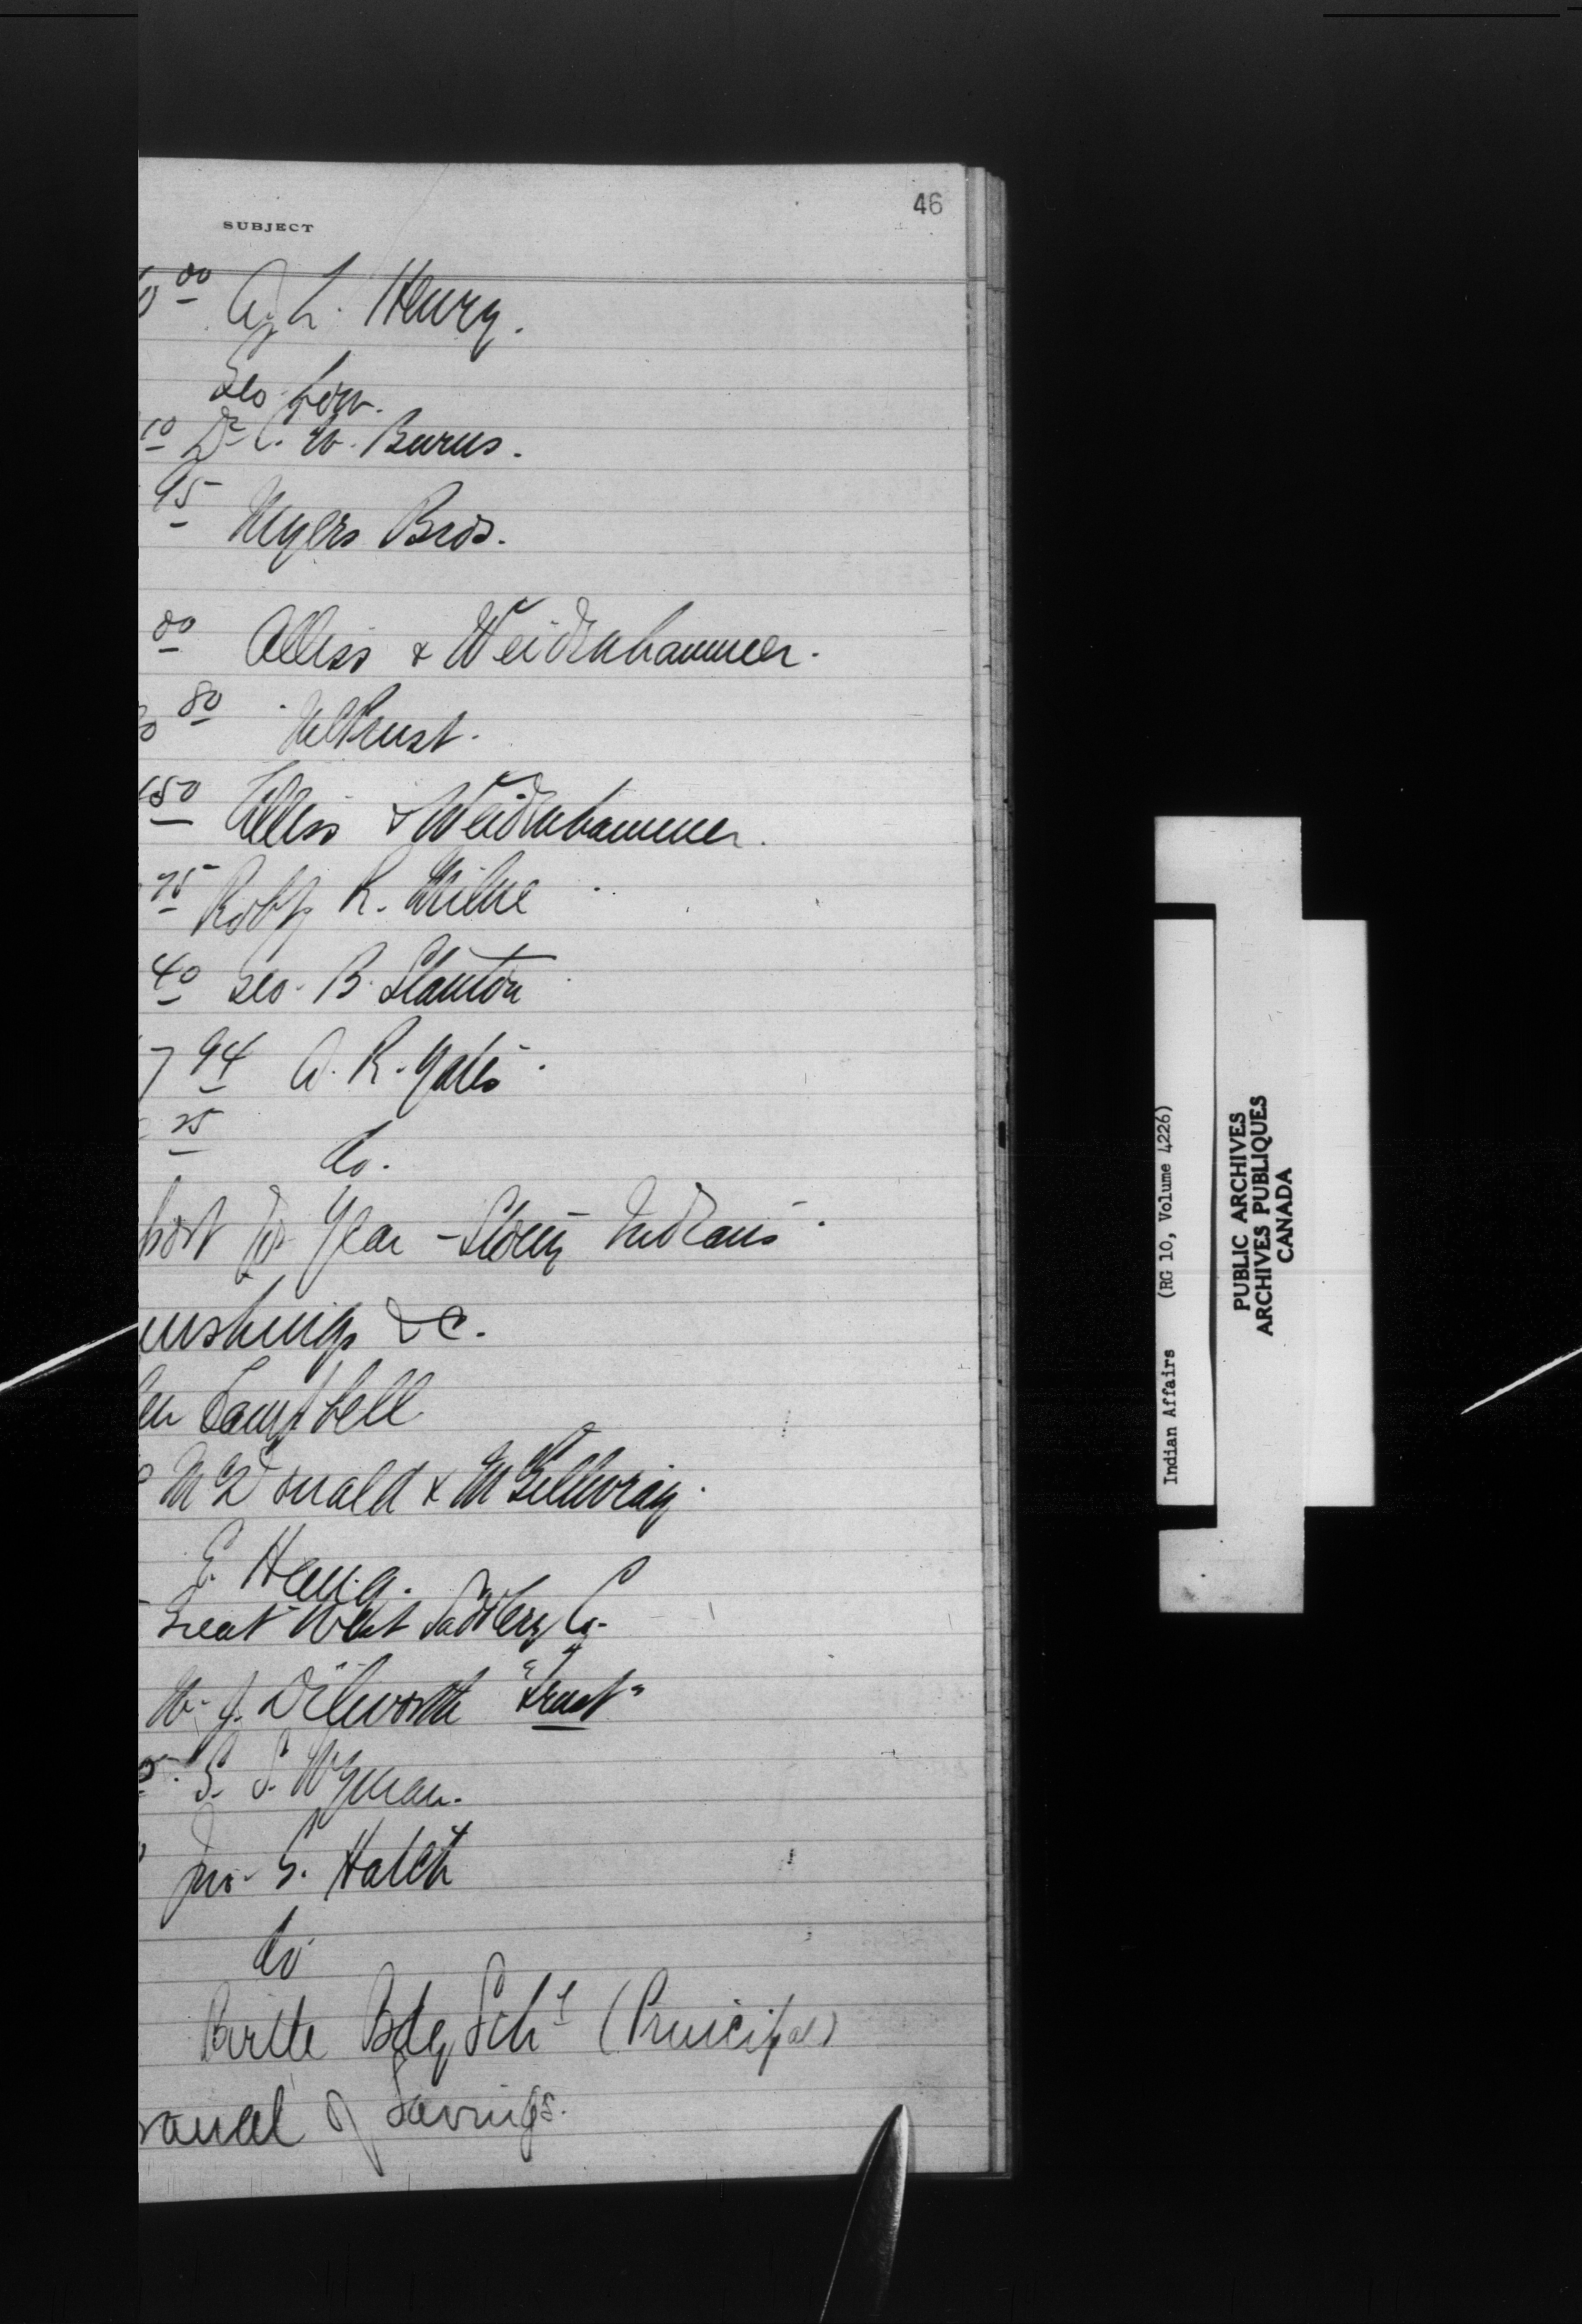 46
SUBJECT
00 A. L. Henry.
Geo. Gow.
10 Dr C. W. Burns.
95 Myers Bros.
00 Alliss & Weidenhammer.
80 Trust.
50 Alliss & Weidenhammer.
75 Robt R. Milne
40 Geo. B. Stanton
7 94 A. R. Yates
25 do.
port for Year - Stony Indians.
urnshings &c.
Campbell
McDonald & McGillivray.
E. Haug.
Great West Saddlery Co.
W. J. Dilworth "Trust"
S. S. Wyman.
Jno. S. Hatch
do
Birtle Bdg Schl (Principal)
rawal of Savings.
Indian Affairs (RG 10, Volume 4226)
PUBLIC ARCHIVES
ARCHIVES PUBLIQUES
CANADA